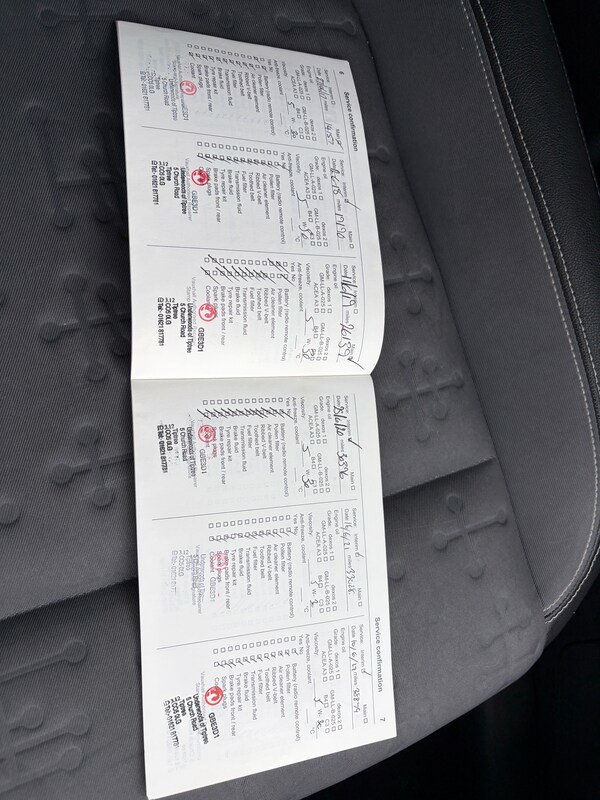 6
Service confirmation
Service: Interim
Main
Date
miles
Engine oil
Grade: dexos 1
dexos 2
GM-LL-A-025
GM-LL-B-025
ACEA A3
B4
C3
Viscosity:
5 W- 30
Anti-freeze, coolant
°C
Yes No
Battery (radio remote control)
Pollen filter
Air cleaner element
Ribbed V-belt
Toothed belt
Fuel filter
Transmission fluid
Brake fluid
Tyre repair kit
Brake pads front / rear
Spark plugs
Coolant
GBE3D1
Underwoods of Tiptree
5 Church Road
Tiptree
CO5 0LG
Tel: 01621 817761
Service: Interim
Main
Date
miles
Engine oil
Grade: dexos 1
dexos 2
GM-LL-A-025
GM-LL-B-025
ACEA A3
B4
C3
Viscosity:
5 W- 30
Anti-freeze, coolant
°C
Yes No
Battery (radio remote control)
Pollen filter
Air cleaner element
Ribbed V-belt
Toothed belt
Fuel filter
Transmission fluid
Brake fluid
Tyre repair kit
Brake pads front / rear
Spark plugs
Coolant
GBE3D1
Underwoods of Tiptree
5 Church Road
Tiptree
CO5 0LG
Tel: 01621 817761
Service:
Main
Date
miles 26139
Engine oil
Grade: dexos 1
dexos 2
GM-LL-A-025
GM-LL-B-025
ACEA A3
B4
C3
Viscosity:
5 W- 30
Anti-freeze, coolant
°C
Yes No
Battery (radio remote control)
Pollen filter
Air cleaner element
Ribbed V-belt
Toothed belt
Fuel filter
Transmission fluid
Brake fluid
Tyre repair kit
Brake pads front / rear
Spark plugs
Coolant
GBE3D1
Underwoods of Tiptree
5 Church Road
Tiptree
CO5 0LG
Tel: 01621 817761
7
Service confirmation
Service:
Main
Date
miles 30396
Engine oil
Grade: dexos 1
dexos 2
GM-LL-A-025
GM-LL-B-025
ACEA A3
B4
C3
Viscosity:
5 W- 30
Anti-freeze, coolant
°C
Yes No
Battery (radio remote control)
Pollen filter
Air cleaner element
Ribbed V-belt
Toothed belt
Fuel filter
Transmission fluid
Brake fluid
Tyre repair kit
Brake pads front / rear
Spark plugs
GBE3D1
Underwoods of Tiptree
5 Church Road
Tiptree
CO5 0LG
Tel: 01621 817761
Service: Interim
Main
Date 14/6/21 miles
Engine oil
Grade: dexos 1
dexos 2
GM-LL-A-025
GM-LL-B-025
ACEA A3
B4
C3
Viscosity:
5 W- 30
Anti-freeze, coolant
°C
Yes No
Battery (radio remote control)
Pollen filter
Air cleaner element
Ribbed V-belt
Toothed belt
Fuel filter
Transmission fluid
Brake fluid
Tyre repair kit
Brake pads front / rear
Spark plugs
Coolant
GBE3D1
Service: Interim
Main
Date
miles
Engine oil
Grade: dexos 1
dexos 2
GM-LL-A-025
GM-LL-B-025
ACEA A3
B4
C3
Viscosity:
5 W- 30
Anti-freeze, coolant
°C
Yes No
Battery (radio remote control)
Pollen filter
Air cleaner element
Ribbed V-belt
Toothed belt
Fuel filter
Transmission fluid
Brake fluid
Tyre repair kit
Brake pads front / rear
Spark plugs
Coolant
GBE3D1
Underwoods of Tiptree
5 Church Road
Tiptree
CO5 0LG
Tel: 01621 817761